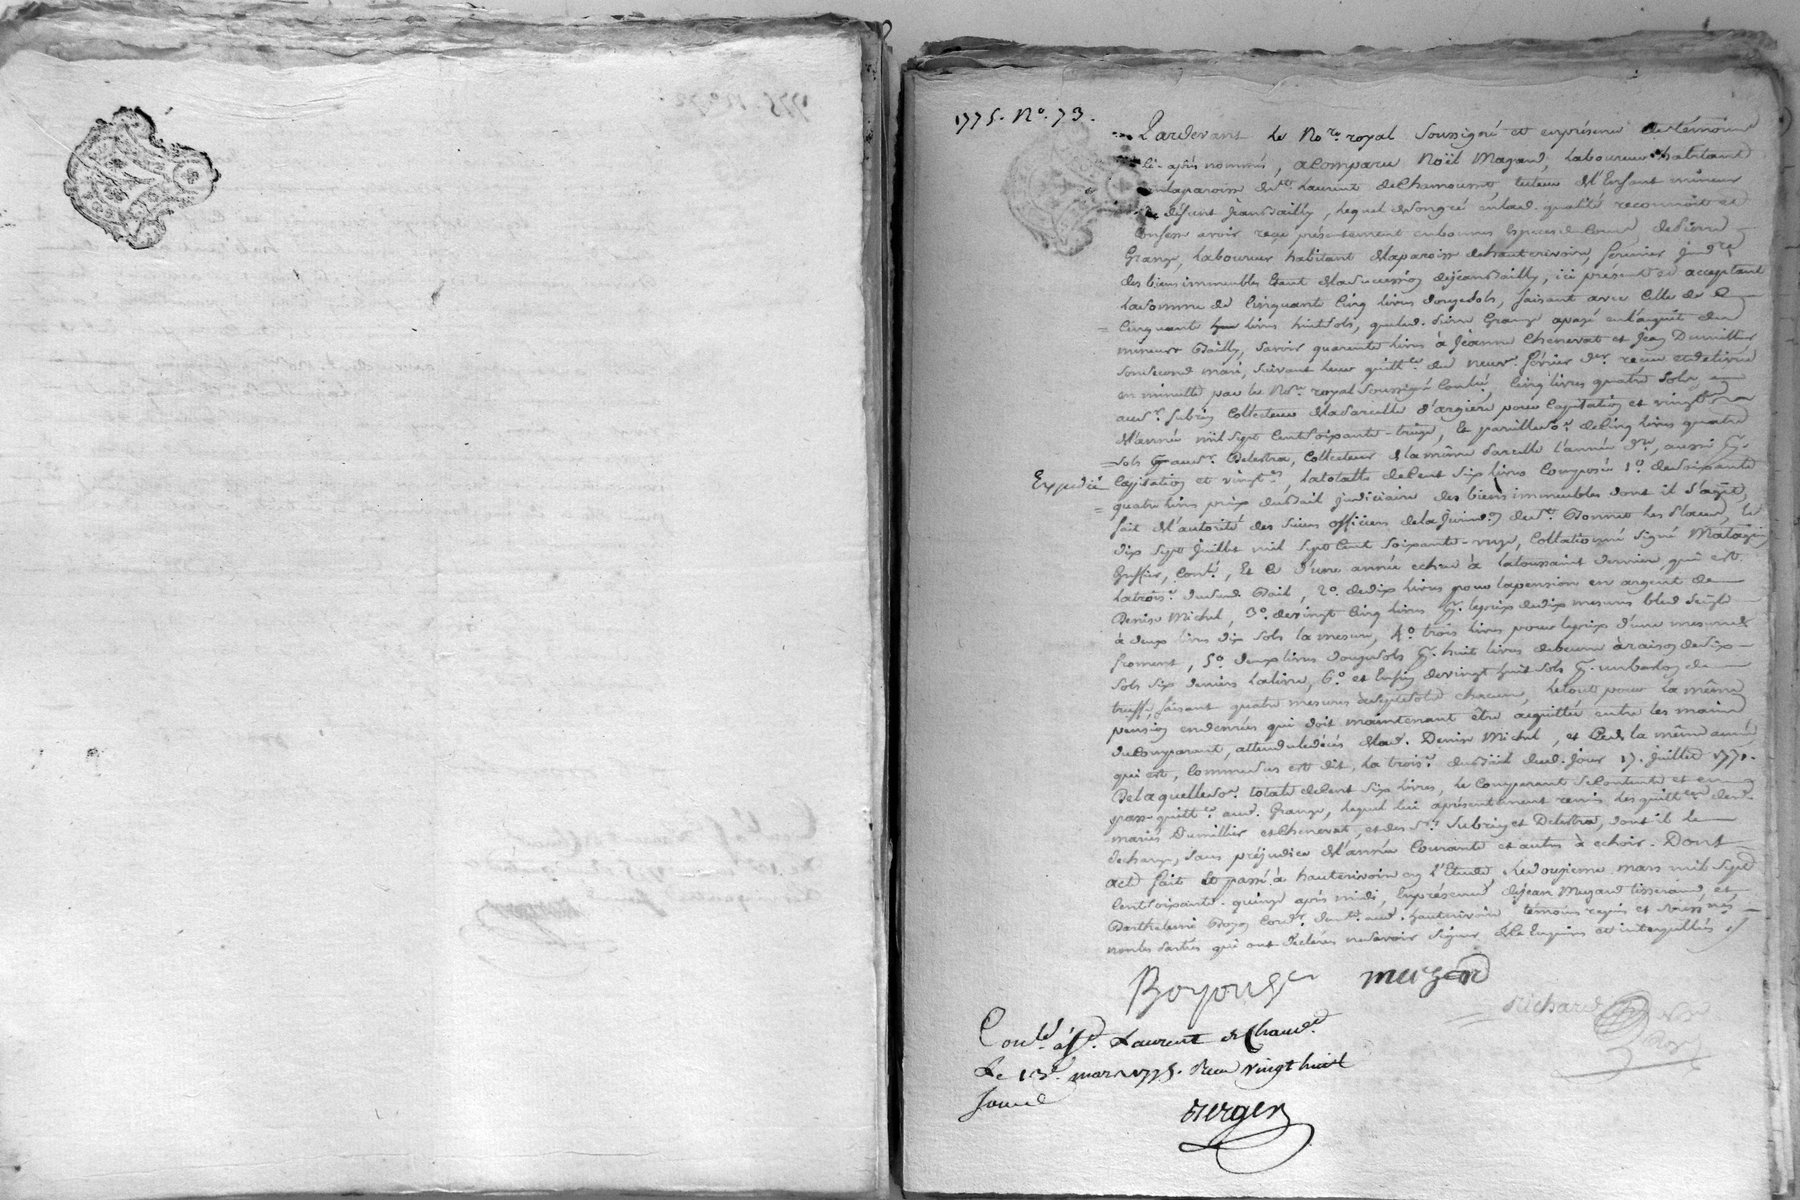 1775. N.º 73.
Pardevant le No.re royal soussigné et en présence des témoins
ci-après nommés, a comparu Noël Mazaud, laboureur habitant
en la paroisse de St. Laurent de Chamousset tuteur de l'Enfant mineur
de défunt Jean Bailly, lequel de son gré en lad. qualité reconnoit et
confesse avoir reçu présentement en bonnes espèces de cours de Pierre
Grange, laboureur habitant de la paroisse de hauterivoire, fermier jud.re
des biens immeubles étant de la succession de Jean Bailly, ici présent et acceptant
la somme de cinquante cinq livres douze sols, faisant avec celle de
cinquante livres huit sols, que led. Pierre Grange a payé en l'acquit du
mineur Bailly, savoir quarante livres à Jeanne Chenevat et Jean Dumillier
son second mari, suivant leur quitt.ce du neuf février d.er reçue et délivrée
en minutte par le No.re royal soussigné Conlé, cinq livres quatre sols
au S.r Subrin collecteur de la parcelle d'argiere pour capitation et vingt.me
de l'année mil sept cent soixante-treize, et pareille so.e de cinq livres quatre
sols au S.r Delestra, collecteur de la même parcelle l'année d.re, aussi p.r
Expedié capitation et vingt.es, la totalle de cent six livres composée 1º. de soixante
quatre livres prix du Bail judiciaire des biens immeubles dont il s'agit,
fait de l'autorité des sieurs officiers de la jurid.on du S.r Bonnet les Places, le
dix sept juillet mil sept cent soixante-onze, collationné signé Matagrin
Greffier, cont.é, et ce d'une année echue à la toussaint dernier, qui est
la trois.e dud. Bail, 2º. de dix livres pour la pension en argent de
Denise Michel, 3º. de vingt cinq livres p.r le prix de dix mesures bled seigle
à deux livres dix sols la mesure, 4º. trois livres pour le prix d'une mesure de
froment, 5º. deux livres douze sols p.r huit livres de beurre à raison de six
sols six deniers la livre, 6º. et Enfin de vingt huit sols p.r un barlon de
truffe, faisant quatre mesures à sept sols chacune, le tout pour la même
pension en denrées qui doit maintenant être acquittée entre les mains
du comparant, attendu le décès de lad. Denise Michel, et ce de la même année
qui est, comme dessus est dit, la trois.e du Bail dud. jour 17. juillet 1771.
De laquelle so.e totale de cent six livres, le comparant se contente et en
passe quitt.ce aud. Grange, lequel lui a présentement remis les quitt.ces des d.
mariés Dumillier et Chenevat, et des S.rs Subrin et Delestra, dont il le
décharge, sans préjudice de l'année courante et autres à echoir. Dont
acte fait et passé à hauterivoire en l'Etude, le douzieme mars mil sept
cent soixante-quinze après midi, En présence de Jean Mazaud tisserand, et
Barthelemi Boyon cord.r dem.t aud. hauterivoire témoins requis et soussignés
non les parties qui ont déclaré ne savoir signer de ce Enquis et interpellés ./.
Boyon mazard
Richard
No.re Roy.
Conlé à St. Laurent de Cham.t
Le 13 mars 1775. Reçu vingt huit
sous
Berger